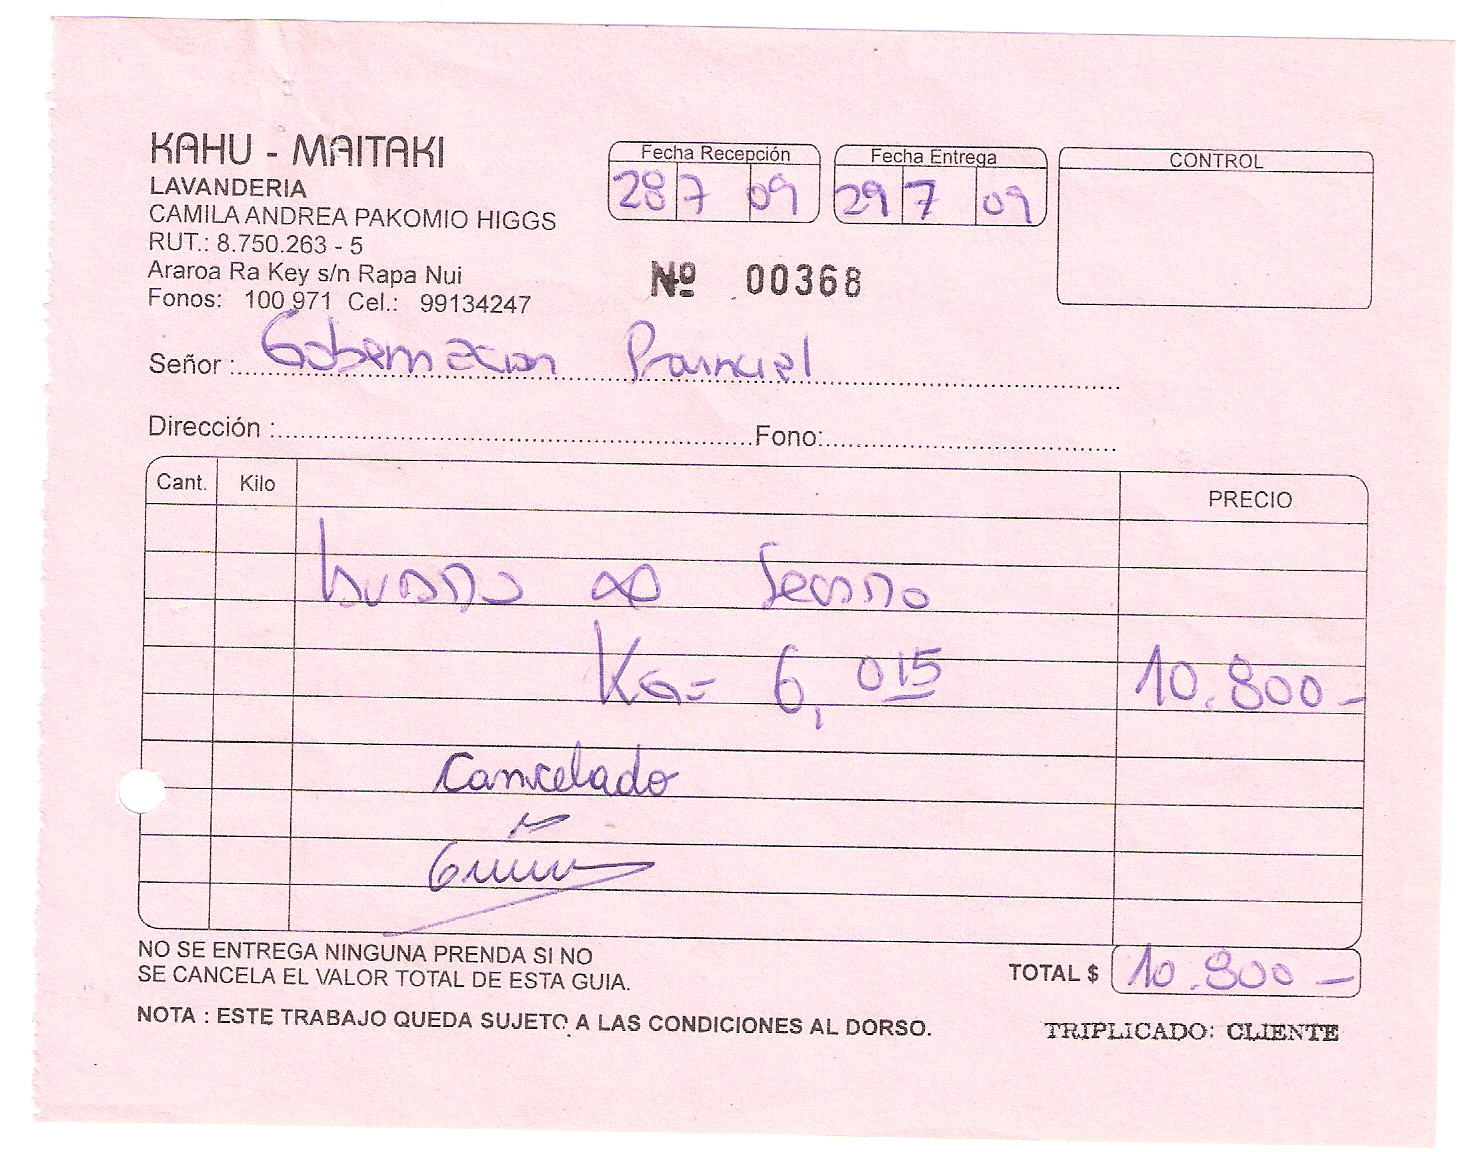 KAHU - MAITAKI
LAVANDERIA
CAMILA ANDREA PAKOMIO HIGGS
RUT.: 8.750.263 - 5
Araroa Ra Key s/n Rapa Nui
Fonos: 100 971 Cel.: 99134247
Fecha Recepción
28 7 09
Fecha Entrega
29 7 09
CONTROL
Nº 00368
Señor : Gobernacion Provincial
Dirección : Fono:
Cant. Kilo PRECIO
Kg= 6,015 10.800-
Cancelado
NO SE ENTREGA NINGUNA PRENDA SI NO
SE CANCELA EL VALOR TOTAL DE ESTA GUIA.
TOTAL $ 10.800-
NOTA : ESTE TRABAJO QUEDA SUJETO A LAS CONDICIONES AL DORSO.
TRIPLICADO: CLIENTE